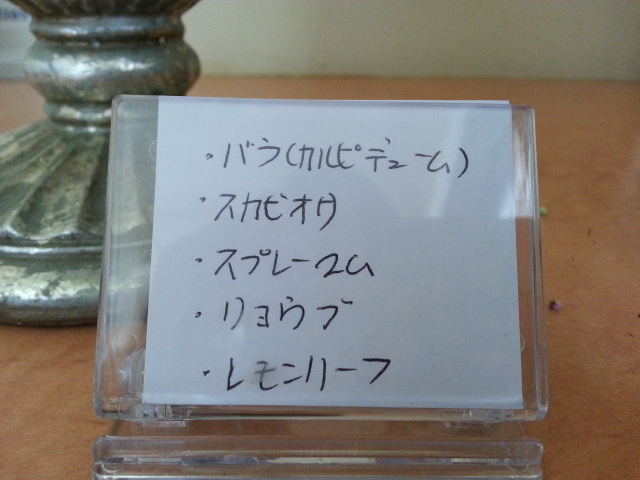 ・バラ(カルピデューム)
・スカビオサ
・スプレーマム
・リョウブ
・レモンリーフ